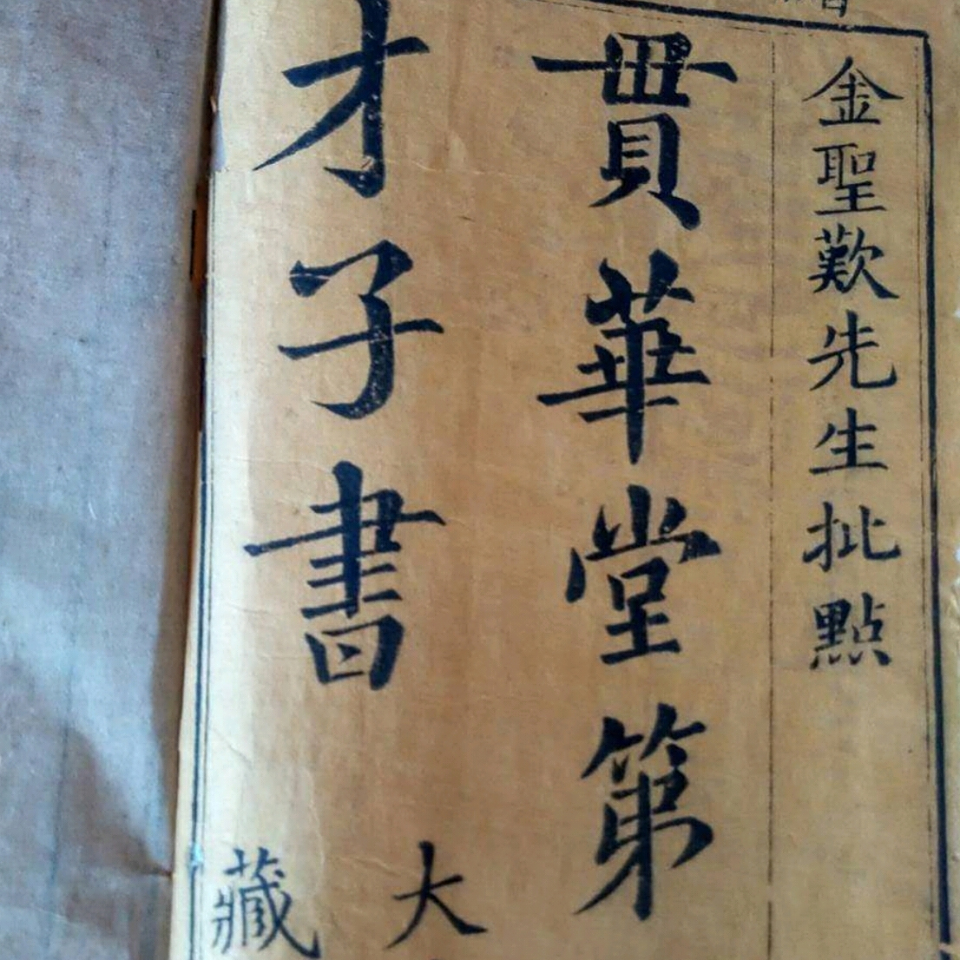 金聖歎先生批點
貫華堂第
才子書
大
藏